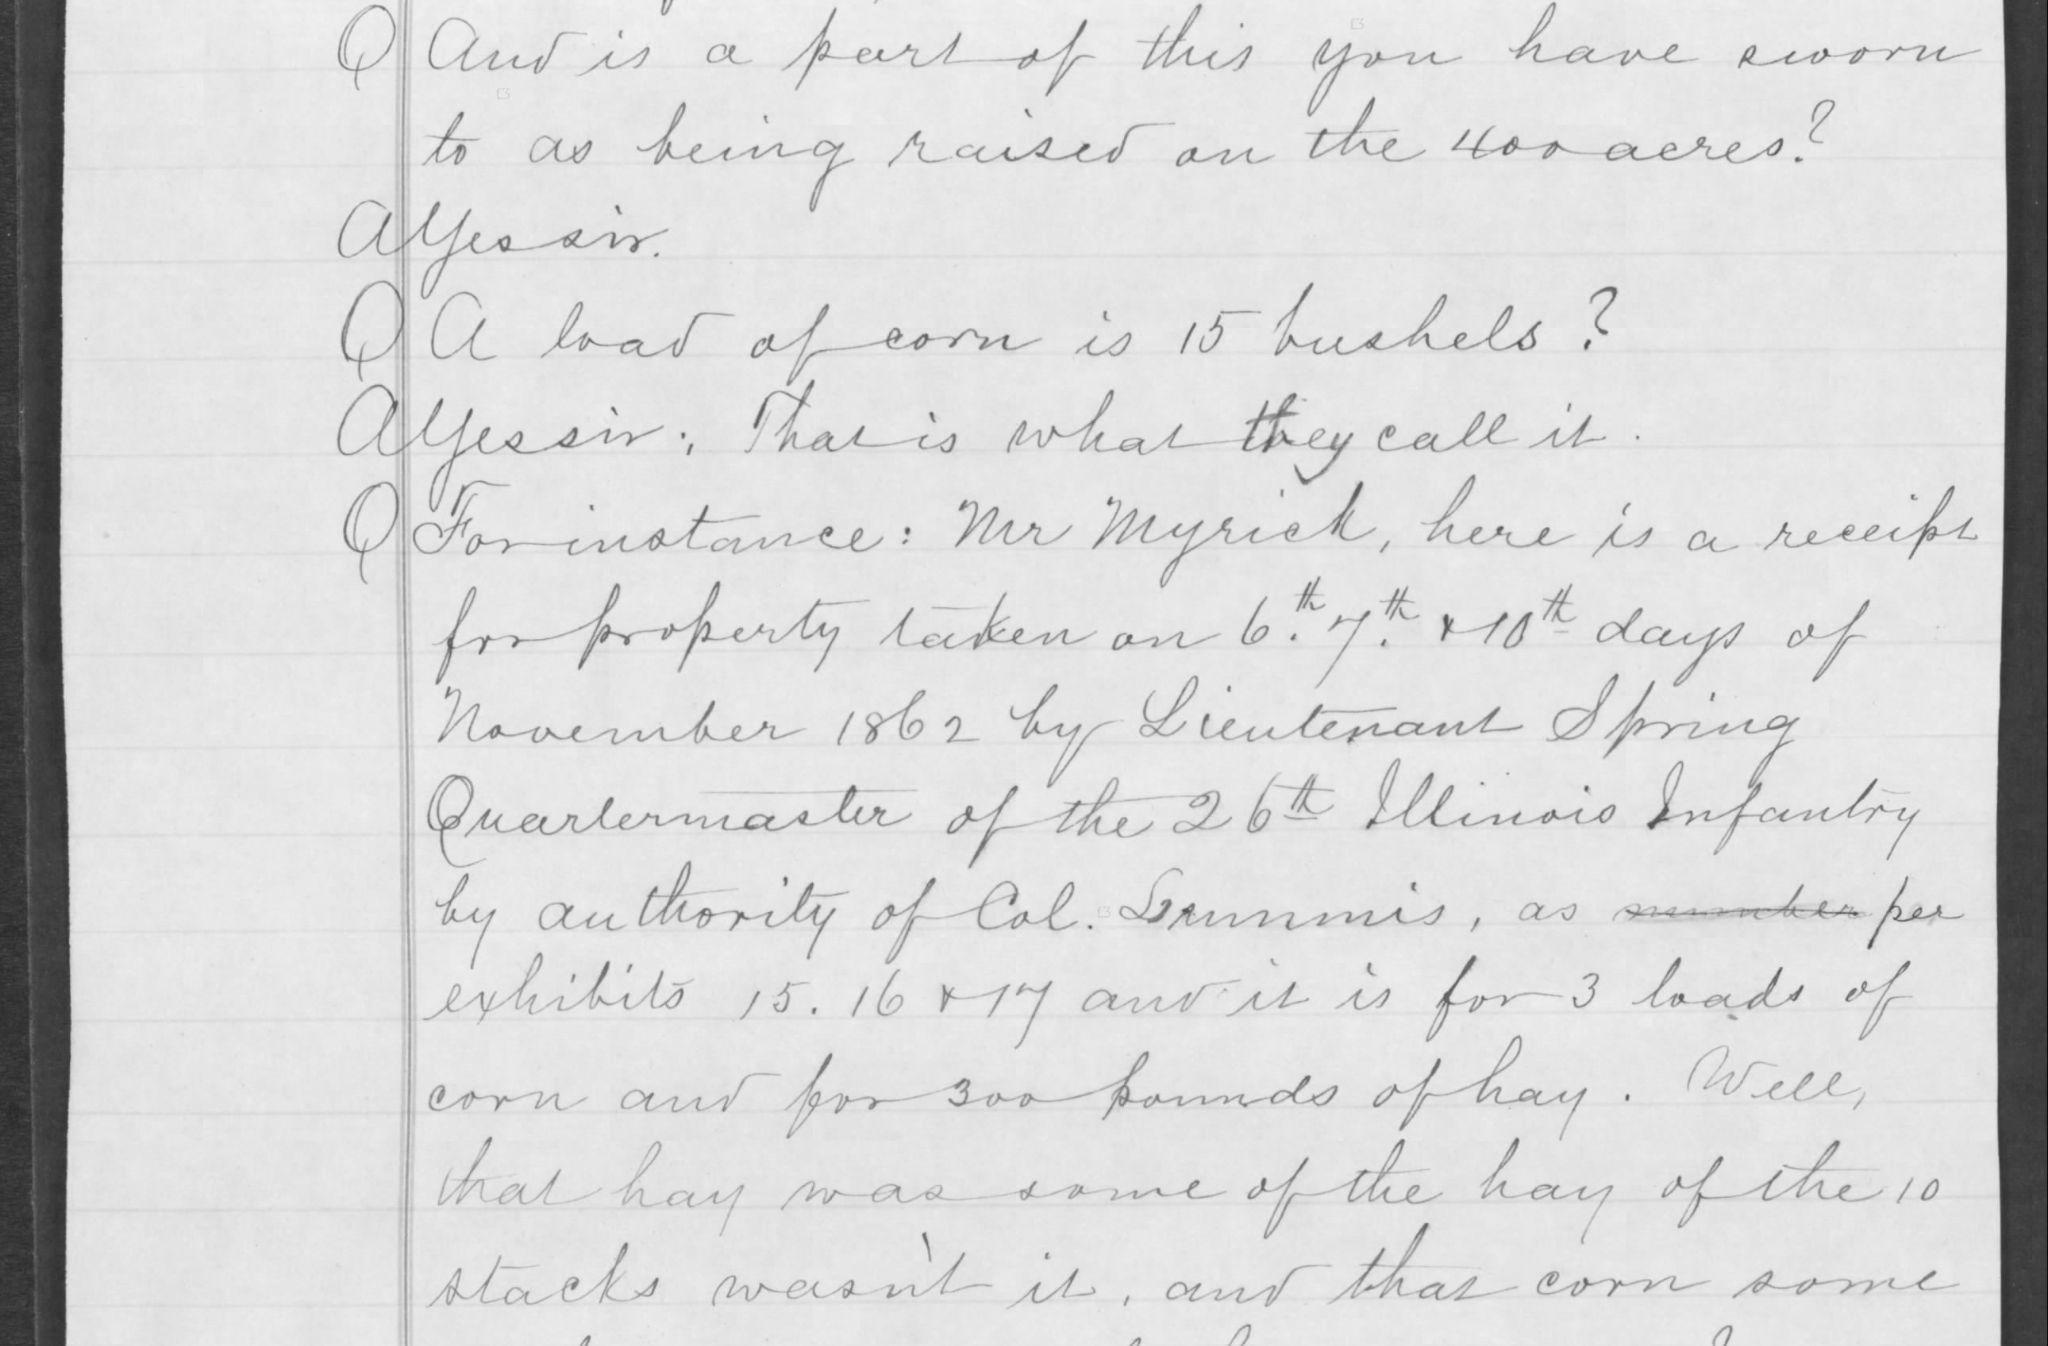 Q And is a part of this you have sworn
to as being raised on the 400 acres?
A Yes sir.
Q A load of corn is 15 bushels?
A Yes sir; That is what they call it.
Q For instance: Mr Myrick, here is a receipt
for property taken on 6th. 7th. & 10th days of
November 1862 by Lieutenant Spring
Quartermaster of the 26th Illinois Infantry
by authority of Col. as number per
exhibits 15. 16 & 17 and it is for 3 loads of
corn and for 300 pounds of hay. Well,
that hay was some of the hay of the 10
stacks wasn't it, and that corn some